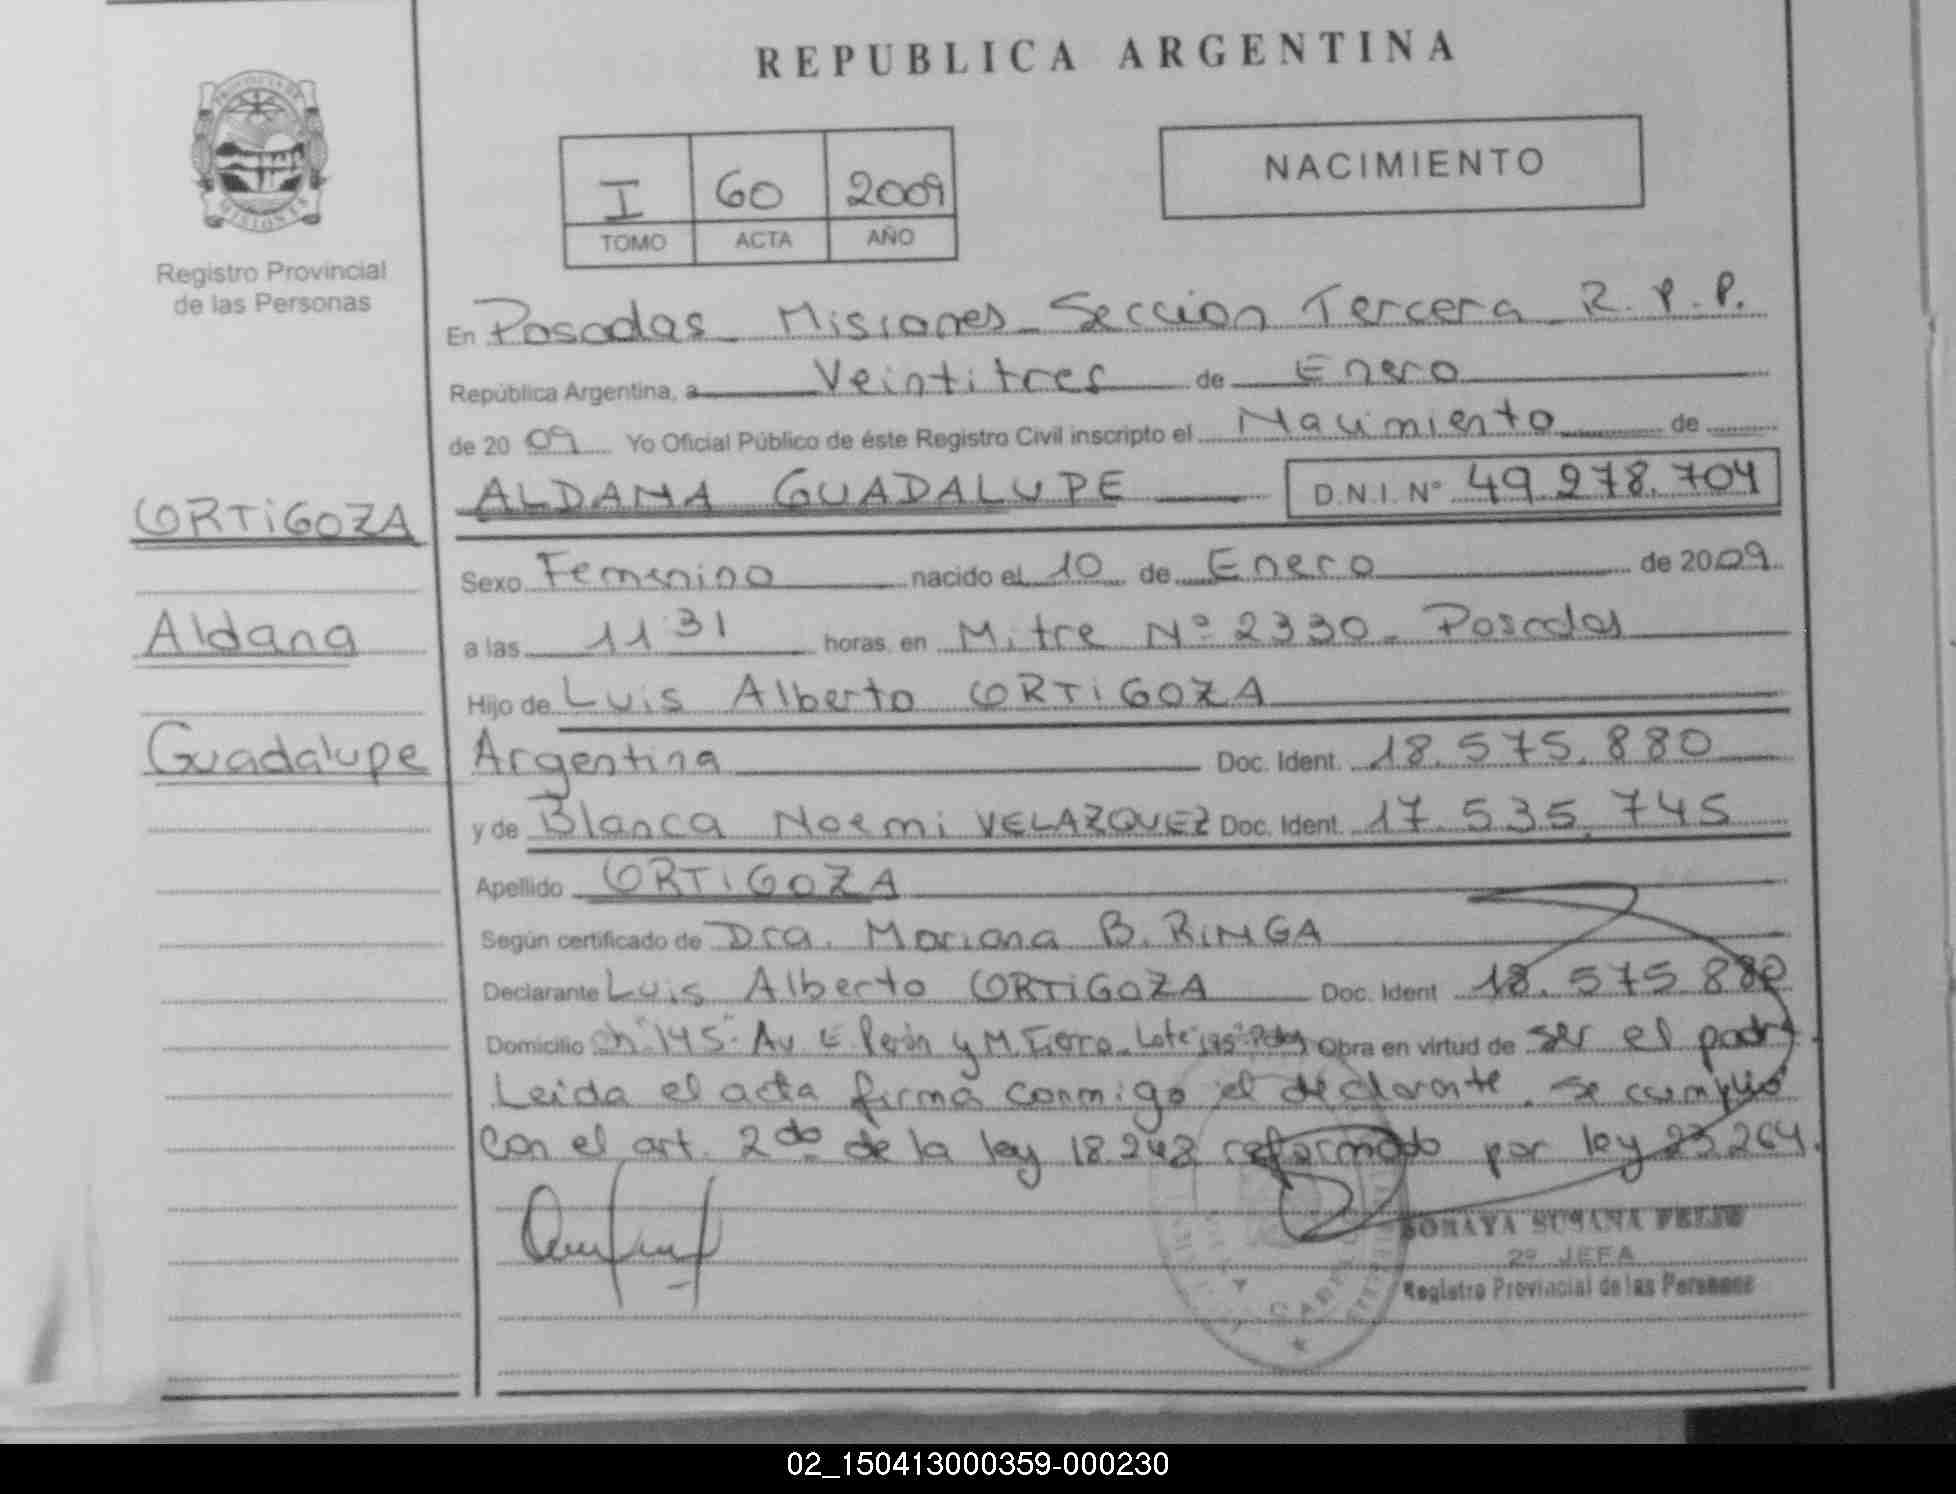 REPUBLICA ARGENTINA
PROVINCIA DE MISIONES
Registro Provincial
de las Personas
I 60 2009
TOMO ACTA AÑO
NACIMIENTO
En Posadas Misiones Seccion Tercera R.P.P.
República Argentina, a Veintitres de Enero
de 2009 Yo Oficial Público de éste Registro Civil inscripto el Nacimiento de
ORTiGOZA
Aldana
Guadalupe
ALDANA GUADALUPE D.N.I. Nº 49.278.704
Sexo Femenino nacido el 10 de Enero de 2009.
a las 11 31 horas, en Mitre Nº 2330. Posadas
Hijo de Luis Alberto ORTiGOZA
Argentina Doc. Ident. 18.575.880
y de Blanca Noemi VELAZQUEZ Doc. Ident. 17.535.745
Apellido ORTiGOZA
Según certificado de Dra. Mariana B. RiNGA
Declarante Luis Alberto ORTiGOZA Doc. Ident 18.575.880
Domicilio ch "145" Av E. Perón y M. Fierro Lote Obra en virtud de ser el padre.
Leida el acta firma conmigo el declarante. Se cumplio
con el art. 2do de la ley 18.248 reformado por ley 23.264.
SORAYA SUSANA
2º JEFA
Registro Provincial de las Personas
02_150413000359-000230